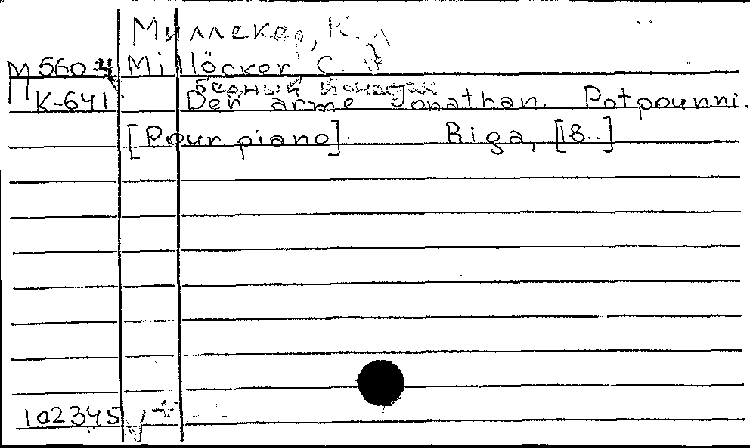 Миллекер, К.
М 560.4 Millöcker, C.
Бедный Ионафан
П К-641 Der arme Jonathan. Potpourri.
[Pour piano]. Riga, [18..]
102345